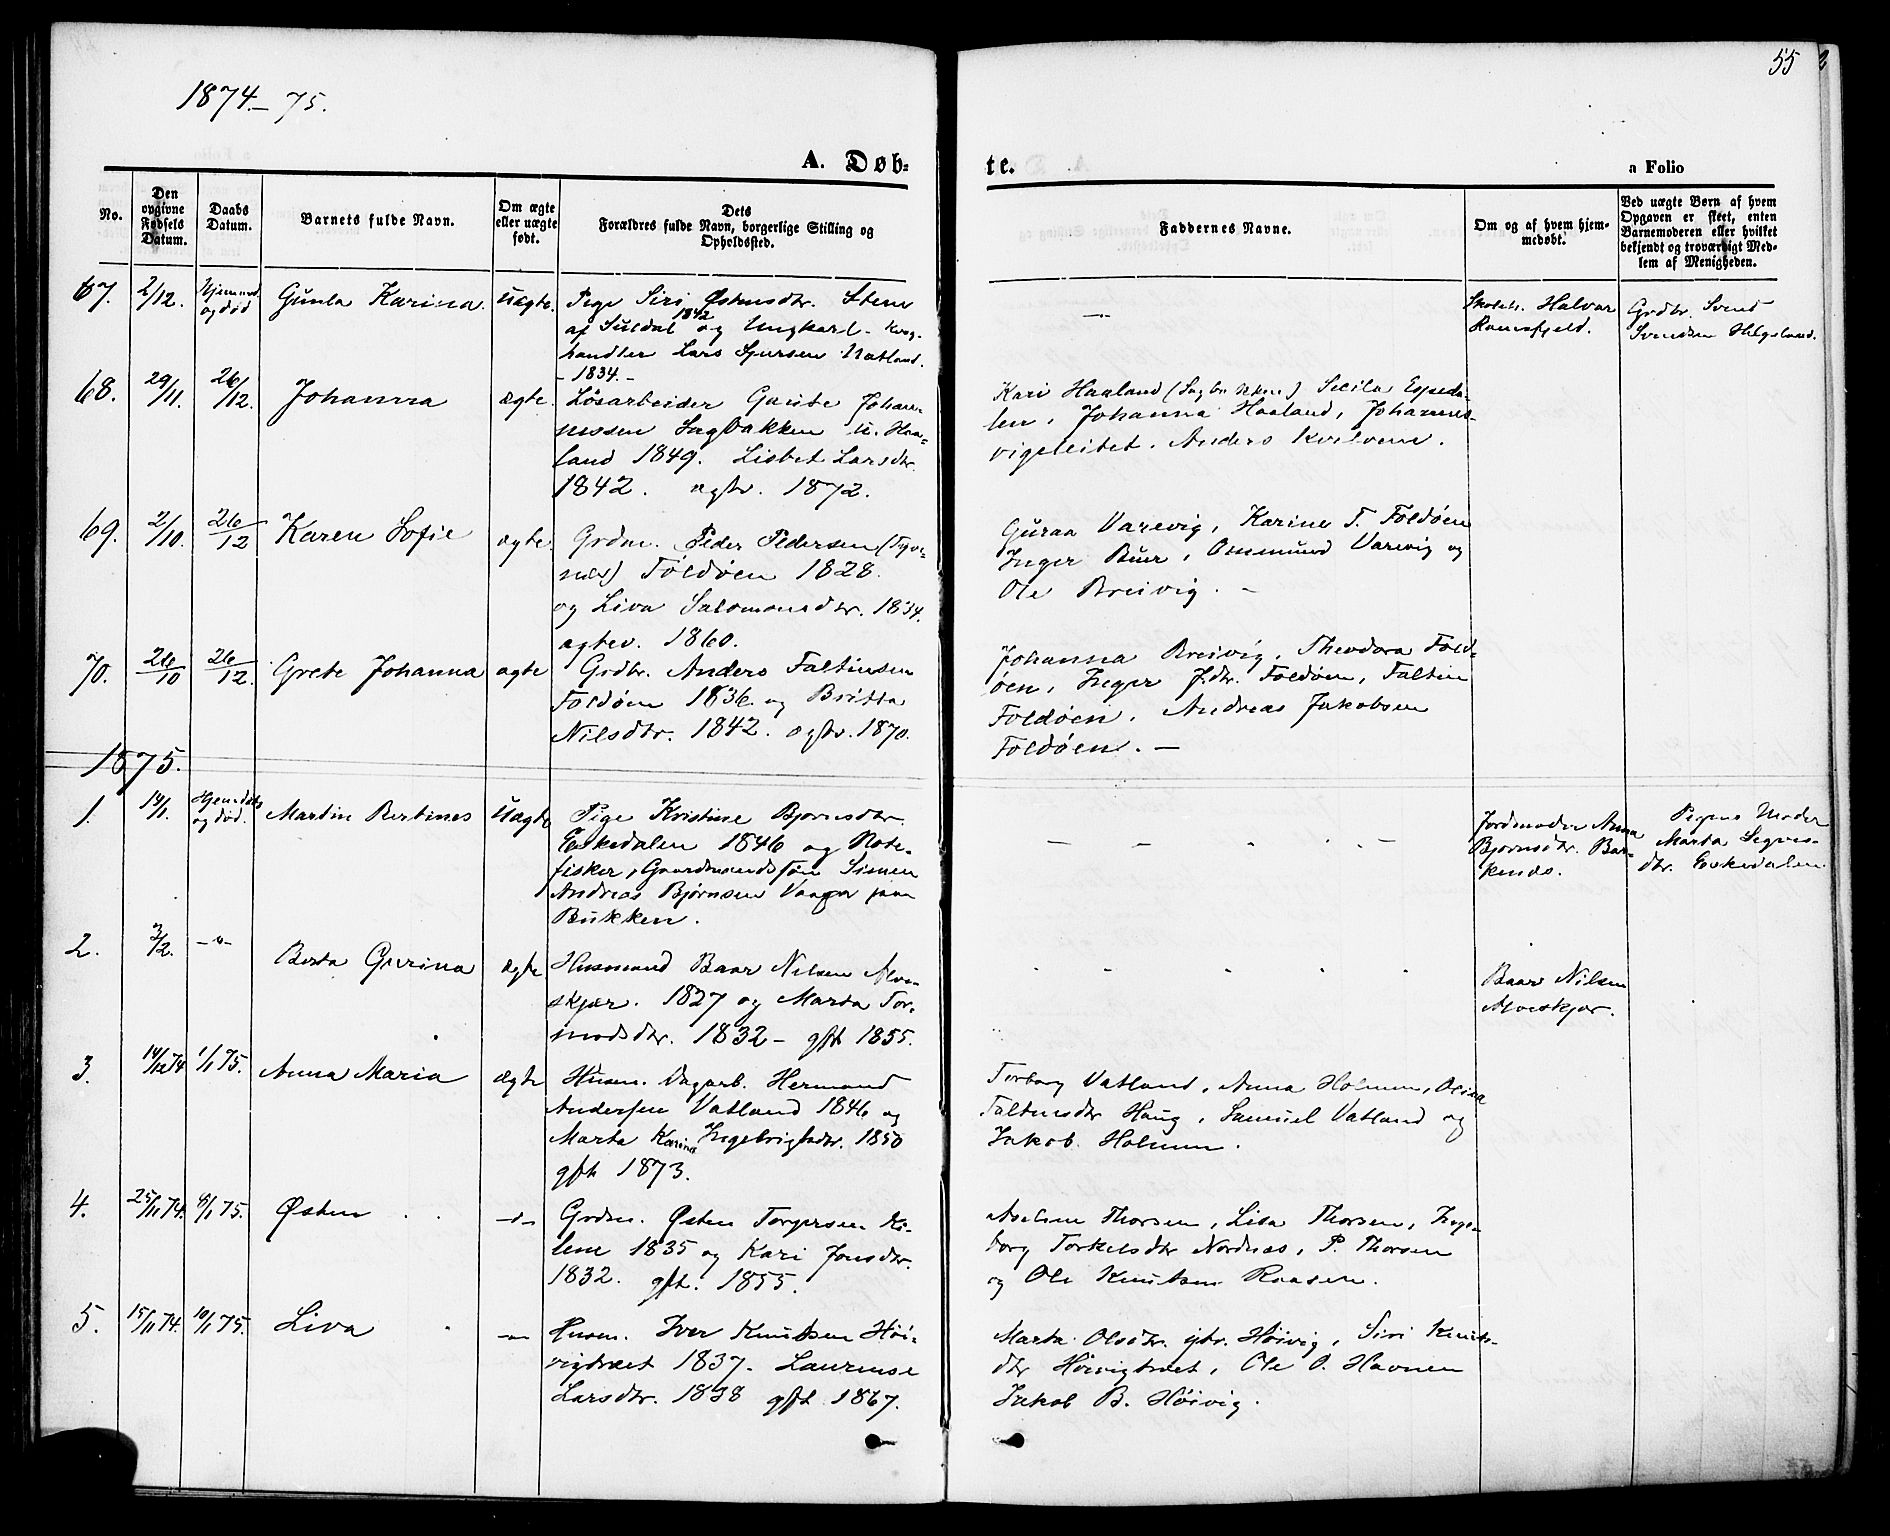 1874 – 75.
55
A. Døb-
te.
a Folio
No.
Den
opgivne
Fødsels
Datum.
Daabs
Datum.
Barnets fulde Navn.
Om ægte
eller uægte
født.
Dets
Forældres fulde Navn, borgerlige Stilling og
Opholdssted.
Faddernes Navne.
Om og af hvem hjem-
medøbt.
Ved uægte Børn af hvem
Opgaven er skeet, enten
Barnemoderen eller hvilket
bekjendt og troværdigt Med-
lem af Menigheden.
67.
2/12.
og død
Gunla Karina.
Uægte.
Pige Siri Østensdtr. Stene
af Suldal 1842 og Ungkarl. Kreg-
handler Lars Natland.
– 1834. –
—
Halvar
Ramsfjeld.
Grdbr. Svend
Svendsen Helgeland.
68.
29/11.
26/12.
Johanna
ægte.
Løsarbeider Gaute Johan-
nessen Sagbakken u. Haa-
land 1849. Lisbet Larsdtr.
1842. ægtv. 1872.
Kari Haaland Secilia Espeda-
len, Johanna Haaland, Johannes
vigeleitet. Anders Kvilven.
69.
2/10.
26/12
Karen Sofie
ægte.
Grdm. Peder Pedersen
Foldøen 1828.
og Liva Salomonsdtr. 1834.
ægtev. 1860.
Guraa Varevig, Karine T. Foldøen
Inger Buer, Ommund Varevig og
Ole Breivig. –
70.
26/10
26/12.
Grete Johanna
ægte
Grdbr. Anders Faltinsen
Foldøen 1836. og Britta
Nilsdtr. 1842. ægtv. 1870.
Johanna Breivig, Theodora Fold-
øen, Inger J.dtr. Foldøen, Faltin
Foldøen. Andreas Jakobsen
Foldøen. –
1875.
1.
14/1.
Hjemdøbt
og død.
Martin Bertines
Uægte
Pige Kristine Bjørnsdtr.
Eskedalen 1846 og Note-
fisker, Gaardmandssøn Simon
Andreas Bjørnsen Vaage paa
Bukken.
– – . . –
Jordmoder Anna
Bjørnsdtr. Bar-
kenes.
Pigens Moder
Marta
dtr. Eskedalen
2.
3/2.
–"–
Berta Gurina
ægte
Husmand Baar Nilsen Alve-
skjær. 1827 og Marta Tor-
modsdtr. 1832 – gft 1855.
Baar Nilsen
Alveskjær.
3.
14/12 74
1/1 75.
Anna Maria
ægte
Husm. Dagarb. Hermand
Andersen Vatland 1846 og
Marta Karina Ingebrigtsdtr. 1850
gft 1873.
Torborg Vatland, Anna Holmen, Olina
Faltinsdtr Haug, Samuel Vatland og
Jakob Holmen.
4.
25/11 74.
6/1 75.
Østen
–"–
Grdm. Østen Torgersen Ki-
lene 1835 og Kari Jonsdtr.
1832. gft. 1855.
Thorsen, Lisa Thorsen, Inge-
borg Torkelsdtr Nordnes, P. Thorsen
og Ole Knutsen Raasen.
5.
15/11 74.
10/1 75.
Liva
–"–
Husm. Iver Knutsen Høi-
vigtræet 1837. Laurense
Larsdtr. 1838 gft 1867.
Marta Olsdtr. gbr. Høivig, Siri Knuts-
dtr Høivigtræet, Ole O. Havnen
Jakob B. Høivig.